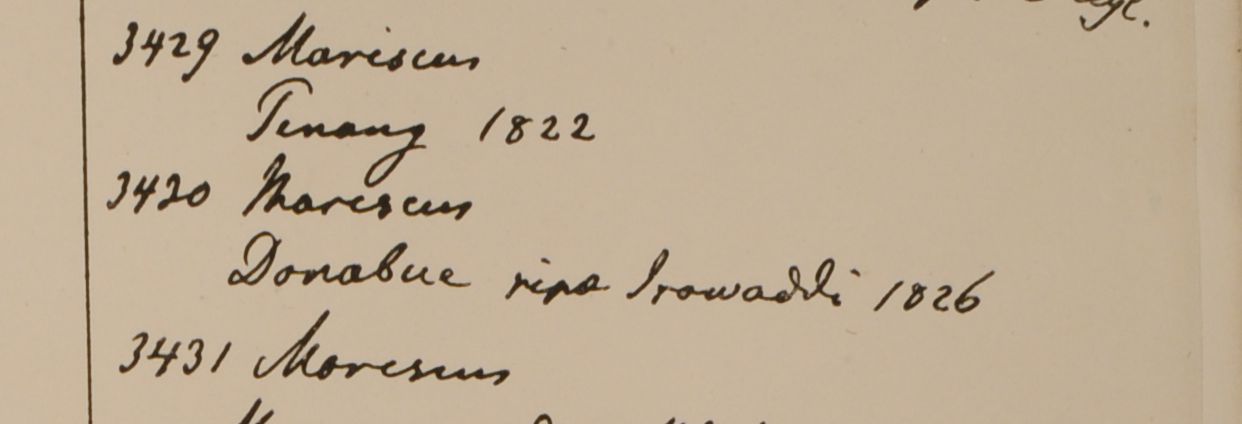 3429 Mariscus
Penang 1822
3430 Mariscus
Donabue ripa Irawaddi 1826
3431 Mariscus